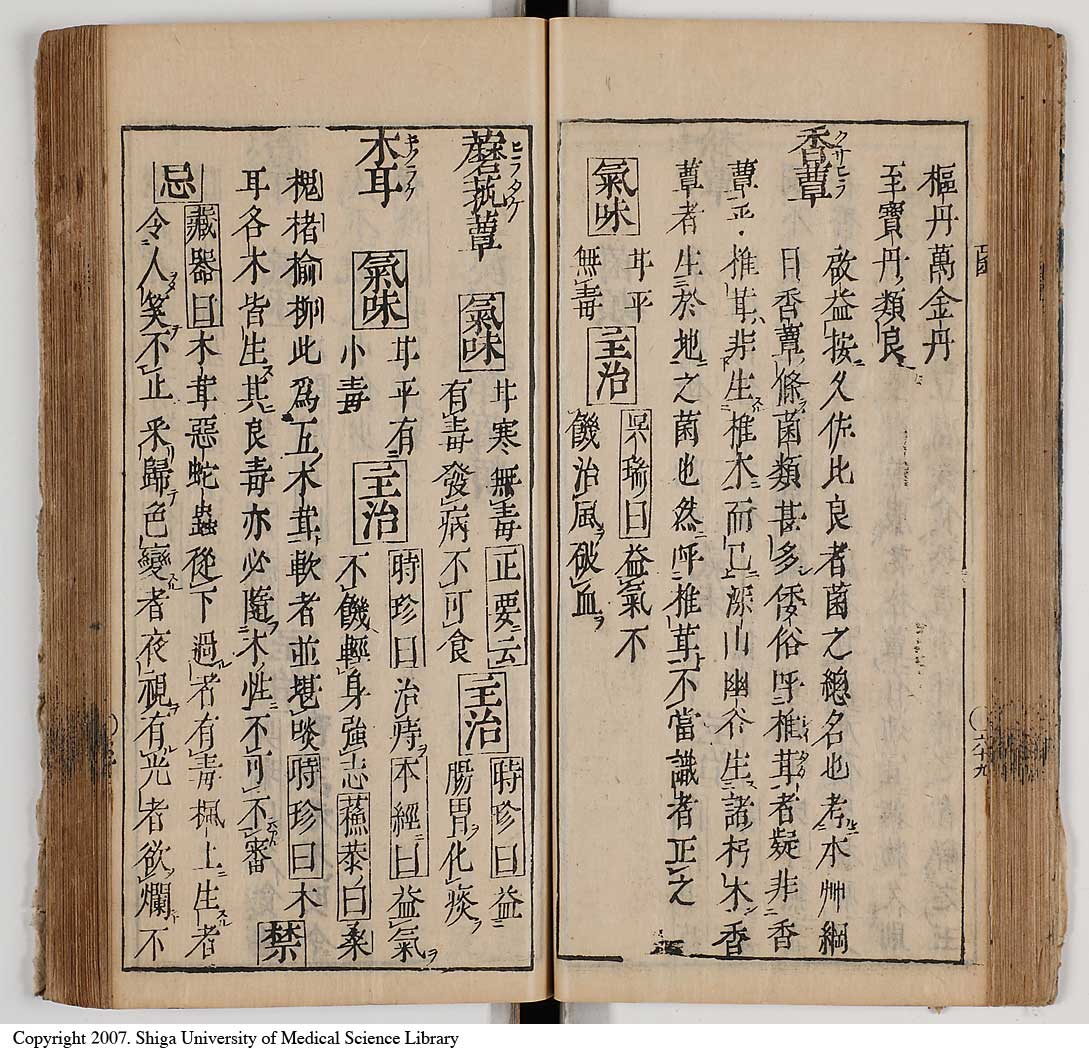 樞丹萬金丹
至寶丹類良
香蕈
啟益按久佐比良者菌之總名也考本艸綱
目香蕈條菌類甚多倭俗呼椎茸者疑非香
蕈平椎茸非生椎木而已深山幽谷生諸朽木香
蕈者生於地之菌也然呼椎茸不當識者正之
氣味 甘平
無毒 主治 吳瑞曰益氣不
饑治風破血
六十九
蘑菰蕈 氣味 甘寒無毒正要云
有毒發病不可食 主治 時珍曰益
腸胃化痰
木耳 氣味 甘平有
小毒 主治 時珍曰治痔本經曰益氣
不饑輕身強志蘇恭曰桑
槐楮榆柳此爲五木茸軟者並堪啖時珍曰木
耳各木皆生其良毒亦必隨木性不可不審 禁
忌 藏器曰木茸惡蛇蟲從下過者有毒楓上生者
令人笑不止采歸色變者夜視有光者欲爛不
Copyright 2007. Shiga University of Medical Science Library